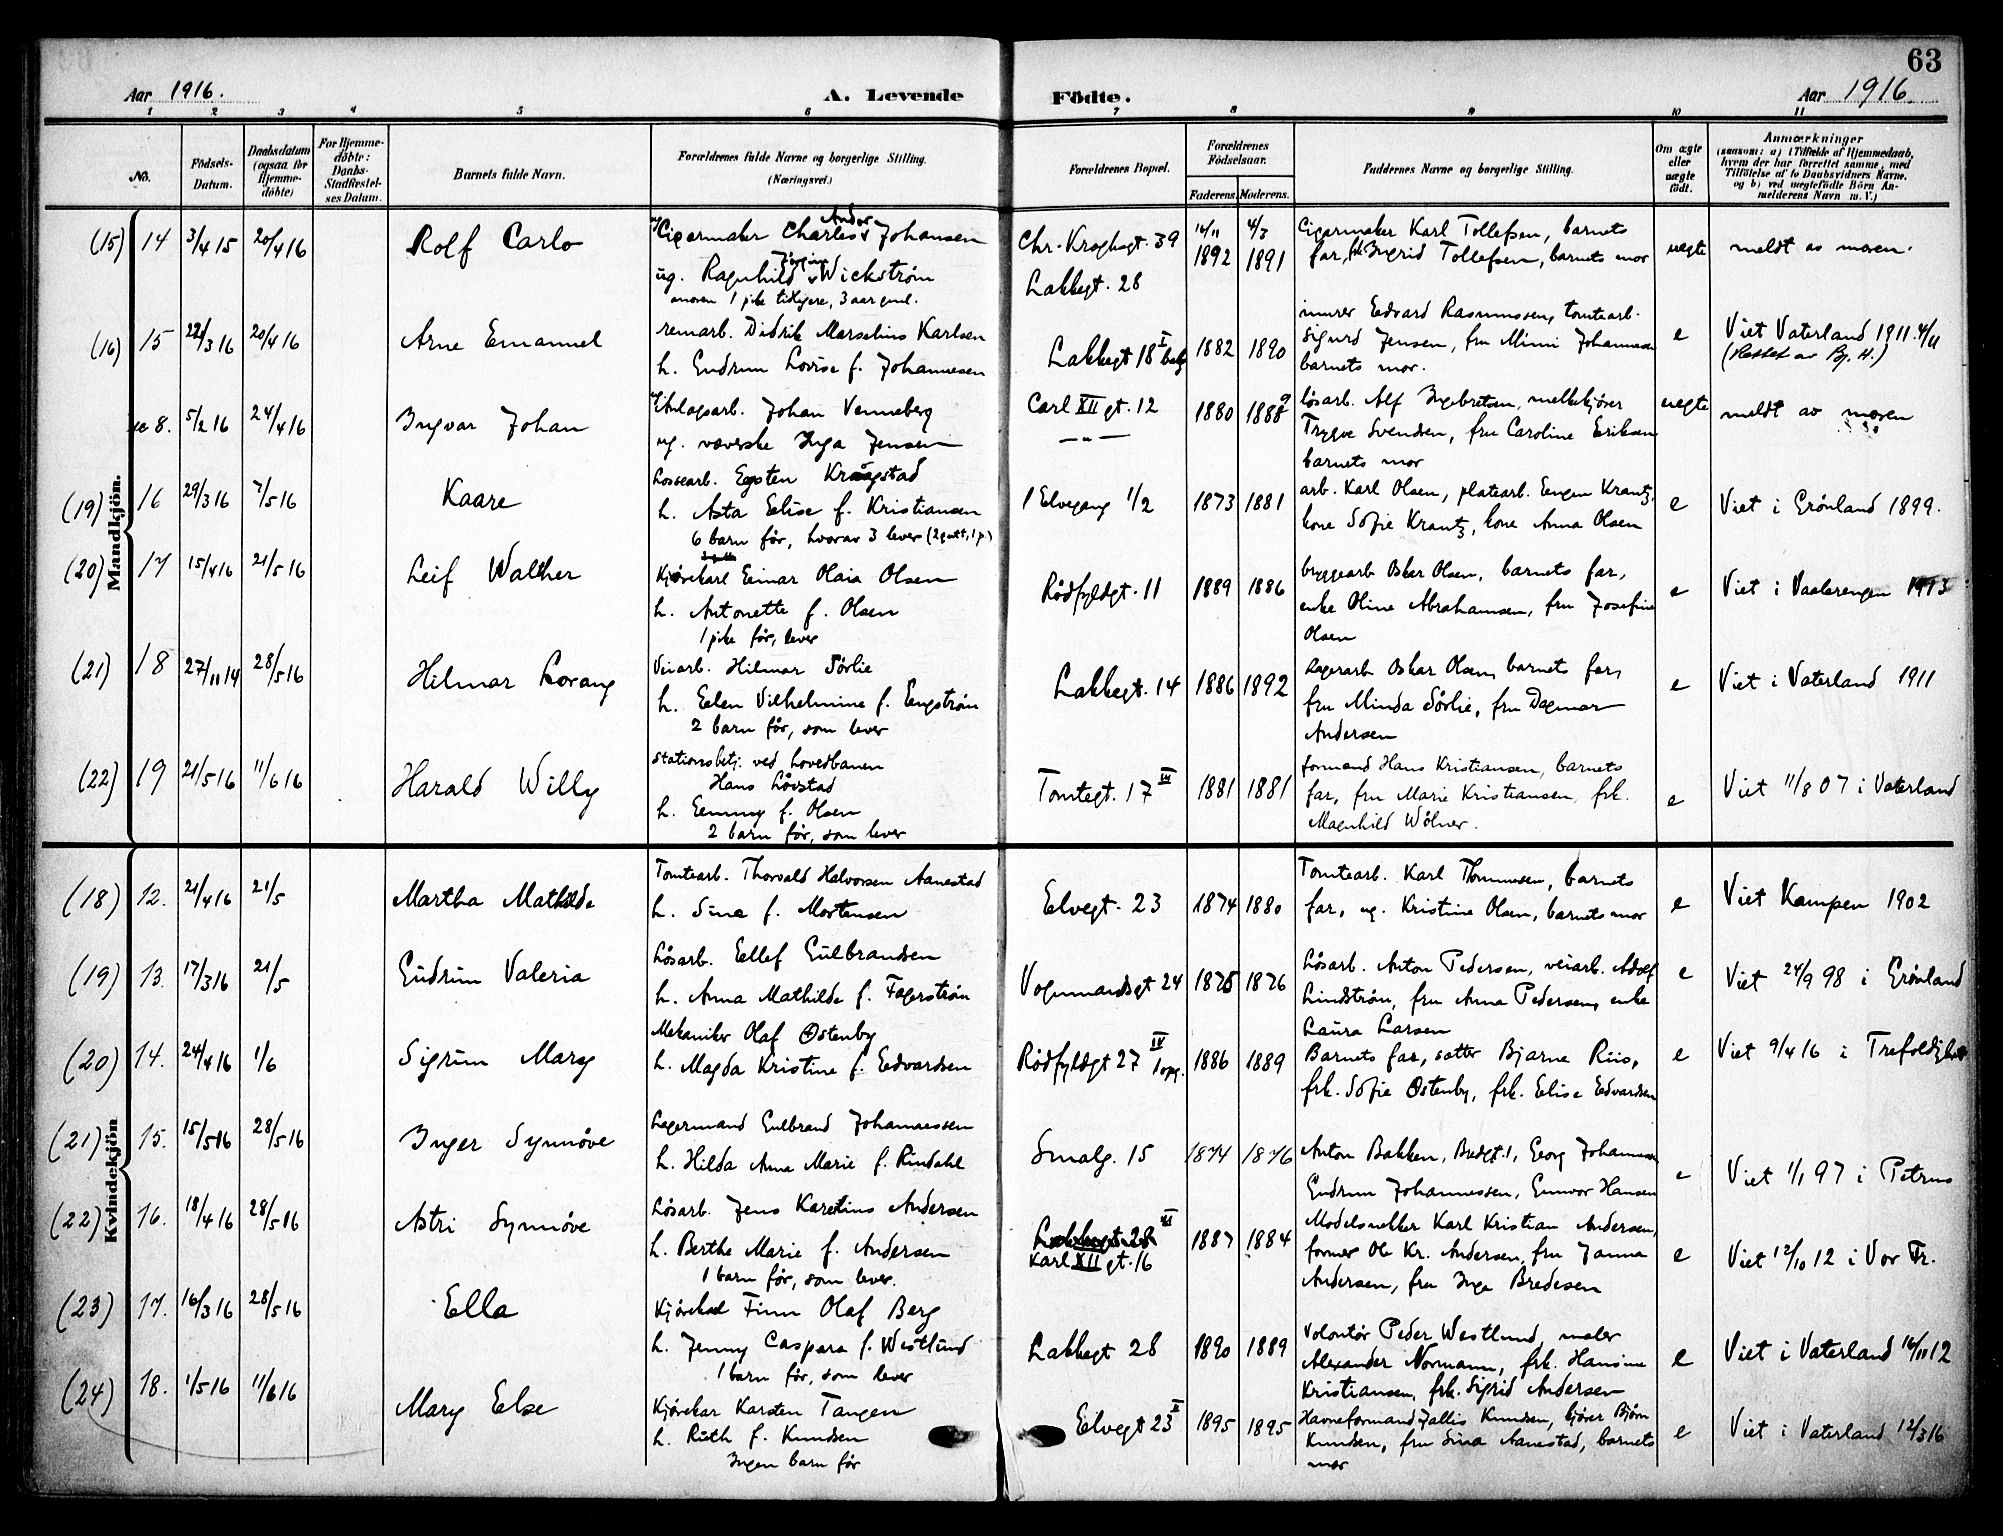 63
Aar 1916.
A. Levende Födte.
Aar 1916.
1 2 3 4 5 6 7 8 9 10 11
No.
Födsels-Datum.
Daabsdatum (ogsaa for Hjemmedöbte)
For Hjemmedöbte: Daabs-Stadfæstelses Datum.
Barnets fulde Navn.
Forældrenes fulde Navne og borgerlige Stilling.
(Næringsvei.)
Forældrenes Bopæl.
Forældrenes Födselsaar.
Faderens. Moderens.
Faddernes Navne og borgerlige Stilling.
Om ægte eller uægte födt.
Anmærkninger
(saasom: a) i Tilfælde af Hjemmedaab,
hvem der har forrettet samme, med
Tilföielse af to Daabsvidners Navne,
og b) ved uægtefödte Börn An-
melderens Navn m. V.)
Mandkjön.
(15) 14 3/4 15 20/4 16 Rolf Carlo
Cigarmaker Charles Andor Johansen
ug. Ragnhild Wickstrøm
moren 1 pike tidligere, 3 aar gml.
Chr. Kroghsgt. 39
Lakkegt. 28
16/11 1892 4/3 1891
Cigarmaker Karl Tollefsen, barnets
far, frk. Ingrid Tollefsen, barnets mor
uegte meldt av moren.
(16) 15 22/3 16 20/4 16 Arne Emanuel
remarb. Didrik Marselius Karlsen
h. Gudrun Lovise f. Johannesen
Lakkegt 18 I
1882 1890
murer Edvard Rasmussen, tomtearb.
Sigurd Jensen, fru Minni Johannesen
barnets mor.
e Viet Vaterland 1911 4/11
8. 5/2 16 24/4 16 Ingvar Johan
Johan Venneberg
ug. væverske Inga Jensen
Carl XII gt. 12
— " —
1880 1888
løsarb. Alf Ingebretsen, melkekjører
Trygve Svendsen, fru Caroline Eriksen
barnets mor
uegte meldt av moren
(19) 16 29/3 16 7/5 16 Kaare
Lossearb. Eysten Kraagstad
h. Asta Elise f. Kristiansen
6 barn før, hvorav 3 lever (2 gutt, 1 p.)
1 Elvegang 1/2
1873 1881
arb. Karl Olsen, platearb. Eugen Krantz,
kone Sofie Krantz, kone Anna Olsen
e Viet i Grønland 1899.
(20) 17 15/4 16 21/5 16 Leif Walther
Kjørekarl Einar Olaia Olsen
h. Antonette f. Olsen
1 pike før, lever
Rødfyldgt. 11
1889 1886
bryggearb Oskar Olsen, barnets far,
enke Oline Abrahamsen, fru Josefine
Olsen
e Viet i Vaalerengen 1913
(21) 18 27/11 14 28/5 16 Hilmar Lorang
Veiarb. Hilmar Sørlie
h. Ellen Vilhelmine f. Engstrøm
2 barn før, som lever
Lakkegt. 14
1886 1892
Lagerarb Oskar Olsen, barnets far,
fru Minda Sørlie, fru Dagmar
Andersen
e Viet i Vaterland 1911
(22) 19 21/5 16 11/6 16 Harald Willy
Stationsbetj. ved hovedbanen
Hans Løvstad
h. Emmy f. Olsen
2 barn før, som lever
Tomtegt. 17 III
1881 1881
formand Hans Kristiansen, barnets
far, fru Marie Kristiansen, frk.
Magnhild Wølner.
e Viet 11/8 07 i Vaterland
Kvindekjön
(18) 12. 21/4 16 21/5 Martha Mathilde
Tomtearb. Thorvald Halvorsen Aanestad
h. Sina f. Mortensen
Elvegt. 23
1874 1880
Tomtearb. Karl Thommesen, barnets
far, ug. Kristine Olsen, barnets mor
e Viet Kampen 1902
(19) 13. 17/3 16 21/5 Gudrun Valeria
Løsarb. Ellef Gulbrandsen
h. Anna Mathilde f. Fagerstrøm
Vognmandsgt 24
1875 1876
Løsarb. Anton Pedersen, veiarb. Adolf
Lindstrøm, fru Anna Pedersen, enke
Laura Larsen
e Viet 24/9 98 i Grønland
(20) 14. 24/4 16 1/6 Sigrun Mary
Mekaniker Olaf Østenby
h. Magda Kristine f. Edvardsen
Rødfyldgt 27 IV
1886 1889
Barnets far, satter Bjarne Riis,
frk. Sofie Østenby, frk. Elise Edvardsen
e Viet 9/4 16 i Trefoldighet
(21) 15. 15/5 16 28/5 16 Inger Synnøve
Lagermand Gulbrand Johannessen
h. Hilda Anna Marie f. Rindahl
Smalg. 15
1874 1876
Anton Bakken, Georg Johannesen
Gudrun Johannessen, Gunvor Hansen
e Viet 1/1 97 i Petrus
(22) 16. 18/4 16 28/5 16 Astri Synnøve
Løsarb. Jens Karelius Andersen
h. Berthe Marie f. Andersen
1 barn før, som lever.
Karl XII gt. 16
1887 1884
Modelsnekker Karl Kristian Andersen,
former Ole Kr. Andersen, fru Janna
Andersen, fru Inga Bredesen
e Viet 12/10 12 i Vor Fr.
(23) 17. 16/3 16 28/5 16 Ella
Kjørekarl Finn Olaf Berg
h. Jenny Caspara f. Westlund
1 barn før, som lever
Lakkegt 28
1890 1889
Volontør Peder Westlund, maler
Alexander Normann, frk. Hansine
Kristiansen, frk. Sigrid Andersen
e Viet i Vaterland 16/11 12
(24) 18. 1/5 16 11/6 16 Mary Else
Kjørekar Karsten Tangen
h. Ruth f. Knudsen
Ingen barn før
Elvegt 23 I
1895 1895
Havneformand Knudsen, kjører Bjørn
Knudsen, fru Sina Aanestad, barnets
mor
e Viet i Vaterland 12/3 16